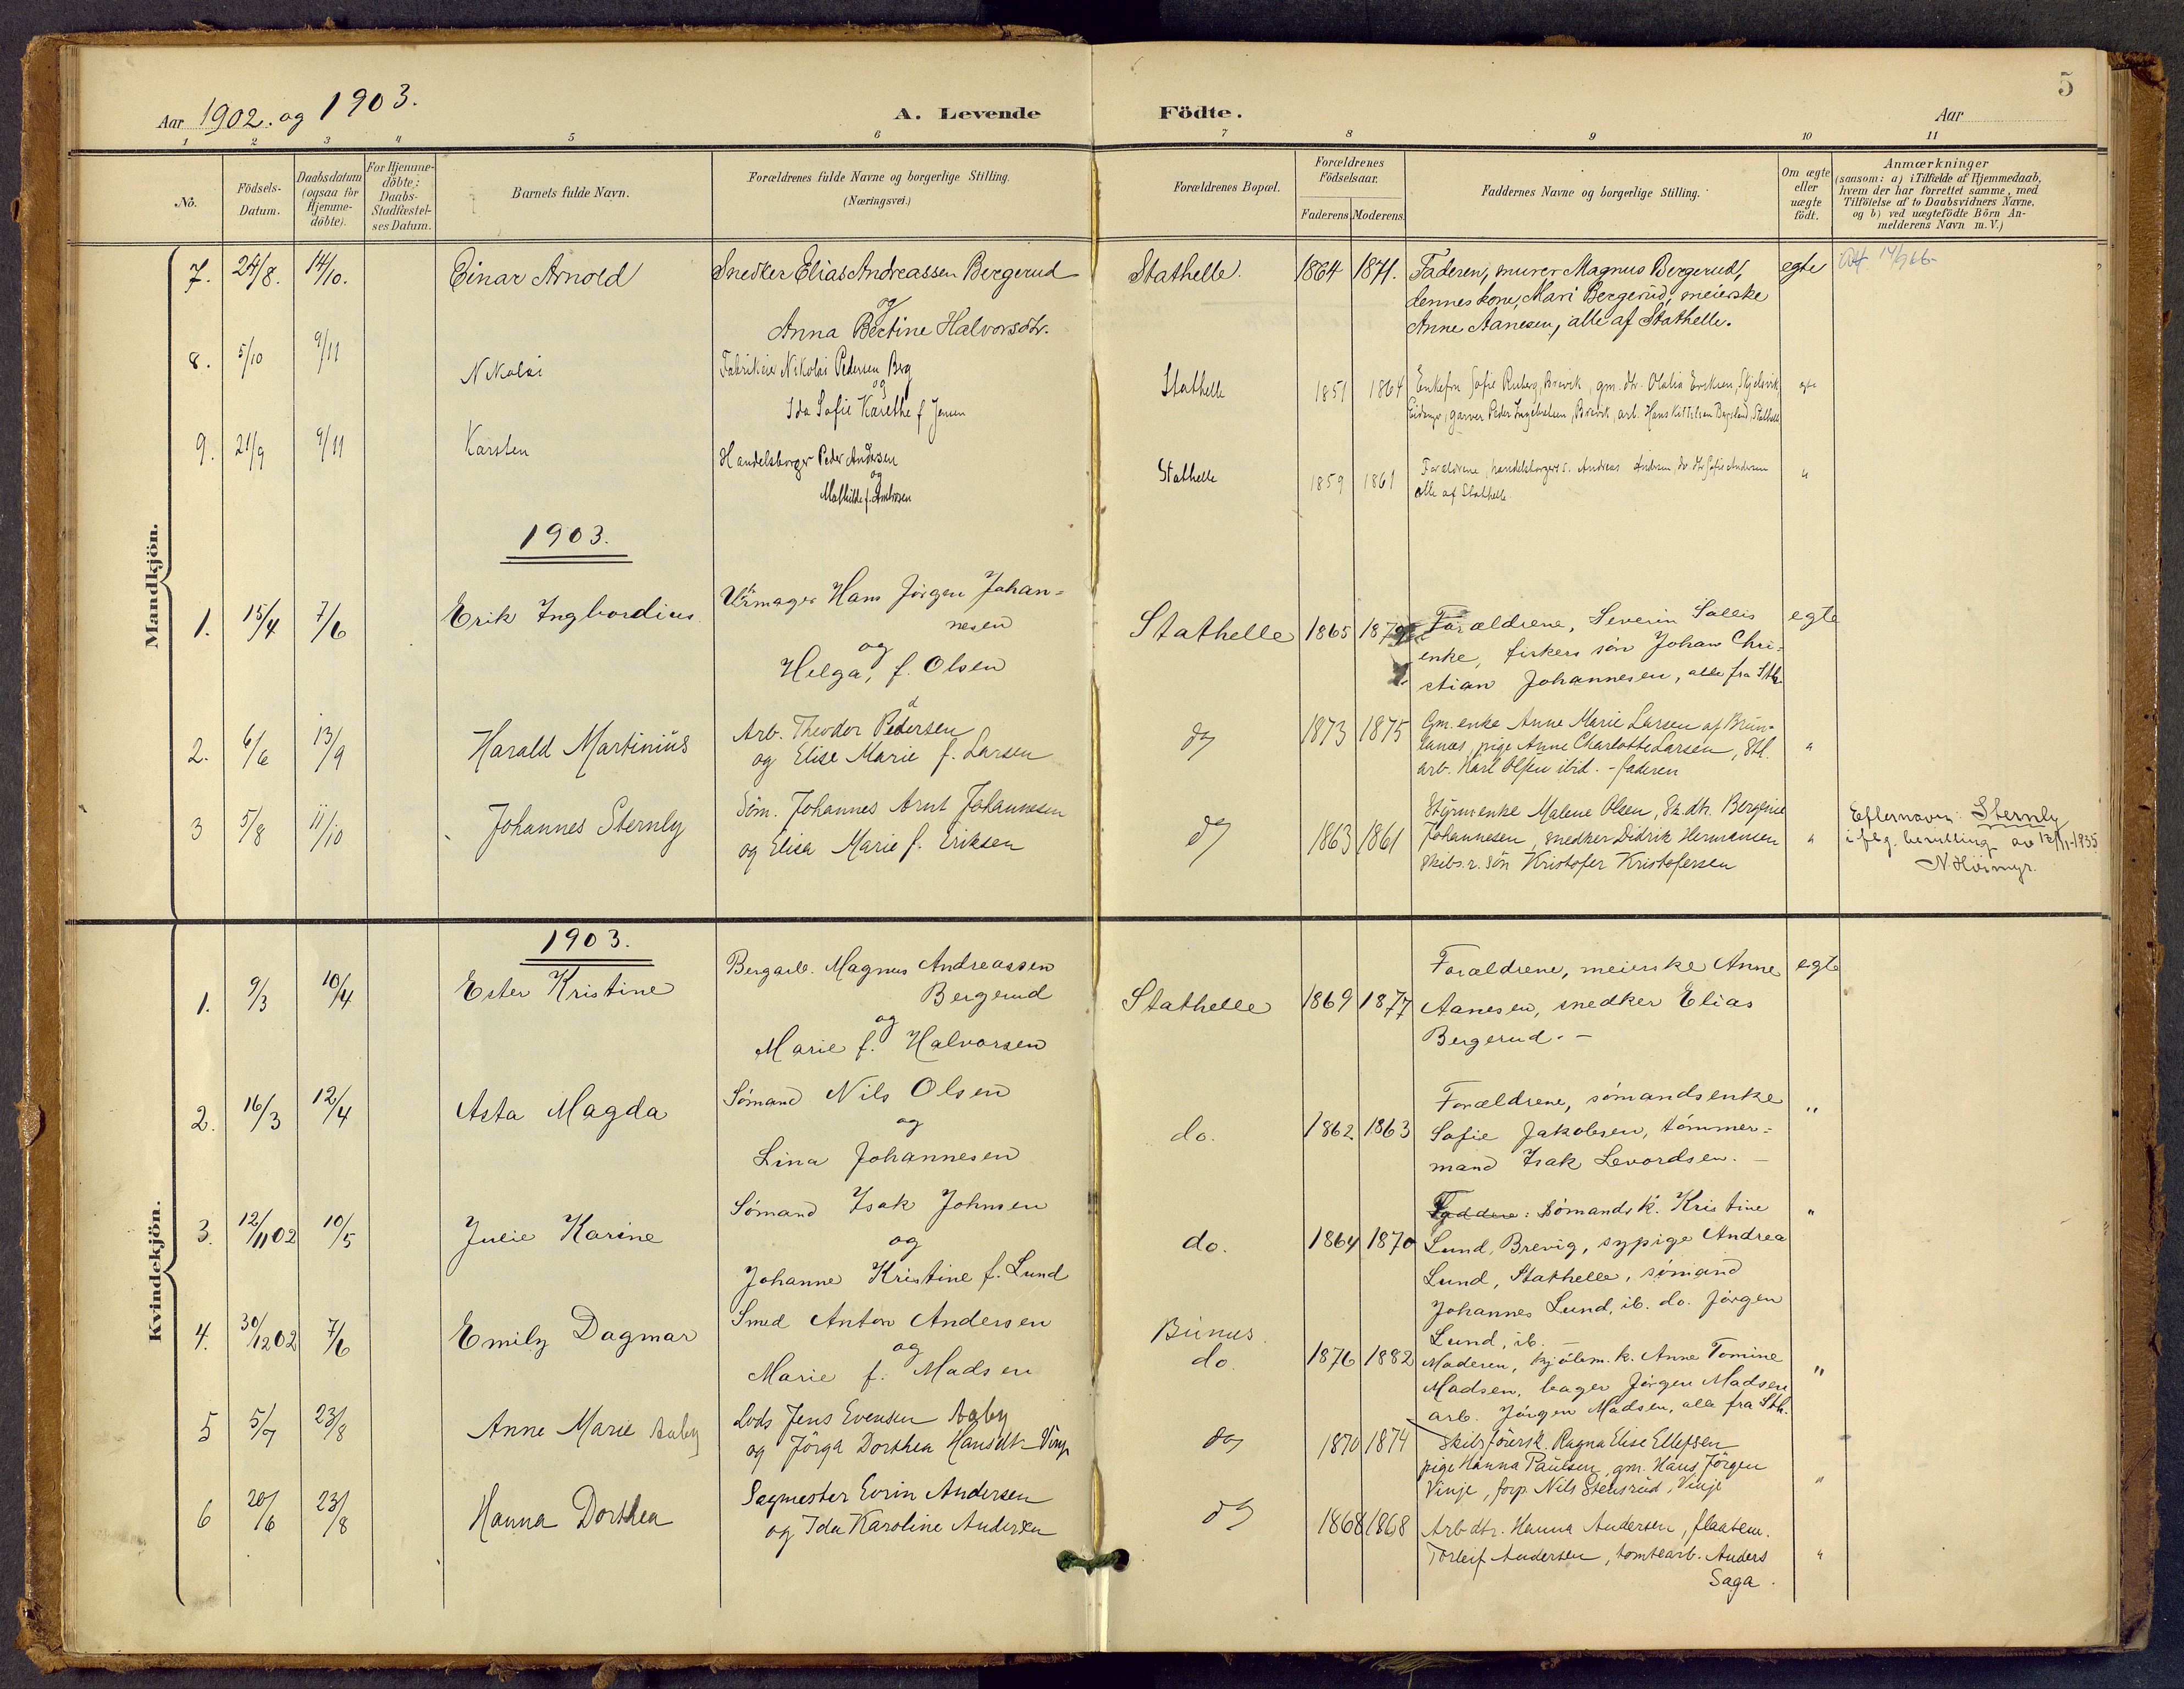 5
Aar 1902. og 1903.
A. Levende Födte.
Aar
1 2 3 4 5 6 7 8 9 10 11
No.
Födsels-Datum.
Daabsdatum (ogsaa for Hjemme-döbte).
For Hjemme-döbte: Daabs-Stadfæstel-ses Datum.
Barnets fulde Navn.
Forældrenes fulde Navne og borgerlige Stilling. (Næringsvei.)
Forældrenes Bopæl.
Forældrenes Födselsaar.
Faderens Moderens.
Faddernes Navne og borgerlige Stilling.
Om ægte eller uægte födt.
Anmærkninger
(saasom: a) i Tilfælde af Hjemmedaab,
hvem der har forrettet samme, med
Tilföielse af to Daabsvidners Navne,
og b) ved uægtefödte Börn An-
melderens Navn m.V.)
Mandkjön.
7. 24/8. 14/10. Einar Arnold
Snedker Elias Andreassen Bergerud
og
Anna Bertine Halvorsdtr.
Stathelle. 1864 1871.
Faderen, murer Magnus Bergerud,
dennes kone, Mari Bergerud, meierske
Anne Aanesen, alle af Stathelle.
egte
8. 5/10 9/11 Nikolai
Fabrikeier Nikolai Pedersen Berg
og
Ida Sofie Karethe f Jensen
Stathelle 1851 1864
Enkefru Sofie Ruberg, Brevik, gm. dtr. Olalia Eriksen, Skjelsvik,
Eidanger, garver Peder Ingebretsen, Brevik, arb. Hans Kittilsen Bagsland, Stathelle
egte
9. 21/9 9/11 Karsten
Handelsborger Peder Andersen
og
Mathilde f. Ambrosen
Stathelle 1859 1861
Forældrene, handelsborgers s. Andreas Andersen, do dtr Sofie Andersen
alle af Stathelle.
"
1903.
1. 15/4 7/6 Erik Ingbordius
Urmager Hans Jörgen Johan-
nesen
og
Helga, f. Olsen
Stathelle 1865 1879
Forældrene, Severin Sallis
enke, fiskers sön Johan Chri-
stian Johannesen, alle fra Sth.
egte
2. 6/6 13/9 Harald Martinius
Arb. Theodor Pedersen
og Elise Marie f. Larsen
do 1873 1875
Gm. enke Anne Marie Larsen af Brun-
lanæs, pige Anne Charlotte Larsen, Sth.
arb. Karl Olsen ibid. - faderen
"
3 5/8 11/10 Johannes Sternly
Söm. Johannes Arnt Johannesen
og Elisa Marie f. Eriksen
do 1863 1861
Styrm enke Malene Olsen, Sk. dtr. Bergine
Johannesen, snedker Didrik Hermansen
skibs.r. sön Kristofer Kristofersen
"
Efternavn: Sternly
iflg. bevilling av 12/11-1935
N. Höimyr.
Kvindekjön.
1903.
1. 9/3 10/4 Ester Kristine
Bergarb. Magnus Andreassen
Bergerud
og
Marie f. Halvorsen
Stathelle 1869 1877
Forældrene, meierske Anne
Aanesen, snedker Elias
Bergerud. -
egte
2. 16/3 12/4 Asta Magda
Sömand Nils Olsen
og
Lina Johannesen
do. 1862 1863
Forældrene, sömandsenke
Sofie Jakobsen, tömmer-
mand Isak Levordsen. -
"
3. 12/11 02 10/5 Julie Karine
Sömand Isak Johnsen
og
Johanne Kristine f. Lund
do. 1864 1870
Faddere: Sömands k. Kristine
Lund, Brevig, sypige Andrea
Lund, Stathelle, sömand
Johannes Lund, ib. do. Jörgen
Lund, ib. -
"
4. 30/12 02 7/6 Emily Dagmar
Smed Anton Andersen
og
Marie f. Madsen
do. 1876 1882
Moderen, kjöbm. k. Anne Tomine
Madsen, bager Jörgen Madsen
arb. Jörgen Madsen, alle fra Sth.
"
5 5/7 23/8 Anne Marie Aaby
Lods Jens Evensen Aaby
og Jörga Dorthea Hansdtr Vinje
do 1870 1874
Skibsförersk. Ragna Elise Ellefsen
pige Hanna Paulsen, gm. Hans Jörgen
Vinje, forp. Nils Stensrud, Vinje
"
6 20/6 23/8 Hanna Dorthea
Sagmester Evin Andersen
og Ida Karoline Andersen
do 1868 1868
Arb dtr. Hanna Andersen, flaatem.
Torleif Andersen, tomtearb. Anders
Saga.
"